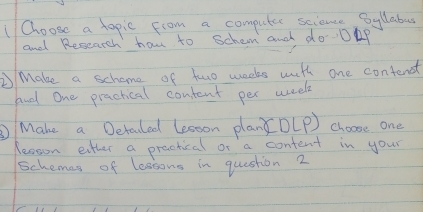 1 Choose a topic from a computer science Syllabus
and Research how to Schem and do DLP
2) Make a scheme of two weeks with one content
and One practical content per week
3) Make a Detailed Lesson plan (DLP) choose one
lesson either a practical or a content in your
Schemes of lessons in question 2